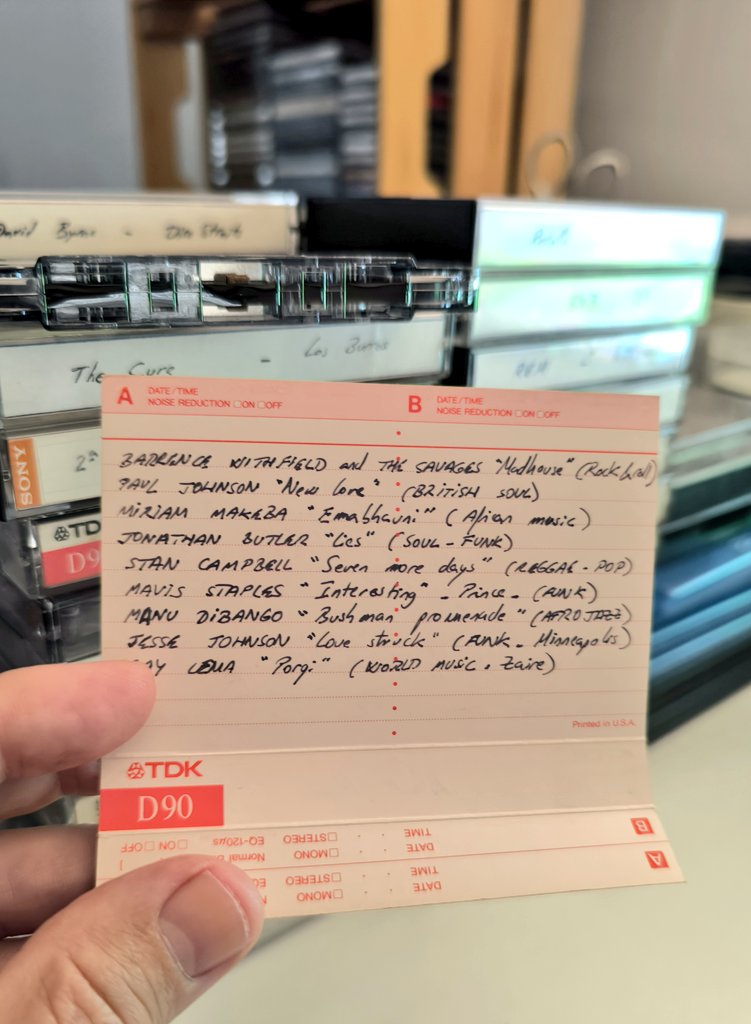 David Byrne -
The Cure - Los Burros
SONY
2ª
TDK
D9
A DATE/TIME
NOISE REDUCTION □ON □OFF
B DATE/TIME
NOISE REDUCTION □ON □OFF
BARRENCE WITHFIELD and THE SAVAGES "Madhouse" (Rock
PAUL JOHNSON "New love" (BRITISH SOUL)
MIRIAM MAKEBA "Emabhacni" (African music)
JONATHAN BUTLER "Lies" (SOUL-FUNK)
STAN CAMPBELL "Seven more days" (REGGAE-POP)
MAVIS STAPLES "Interesting" - Prince - (FUNK)
MANU DIBANGO "Bushman promenade" (AFROJAZZ)
JESSE JOHNSON "Love struck" (FUNK - Minneapolis)
AY LEMA "Porgi" (WORLD MUSIC - Zaire)
Printed in U.S.A.
TDK
D90
B
TIME
DATE
□STEREO
□MONO
EQ-120µs
Normal
□ON □OFF
A
TIME
DATE
□STEREO
□MONO